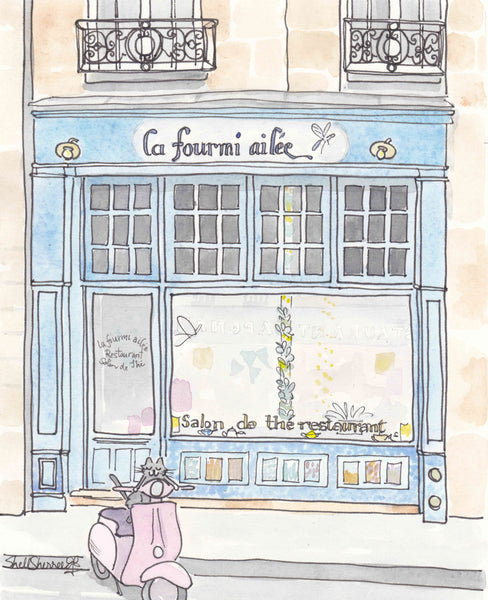 la fourmi ailée
la fourmi ailée
Restaurant
Salon de Thé
Salon de thé restaurant